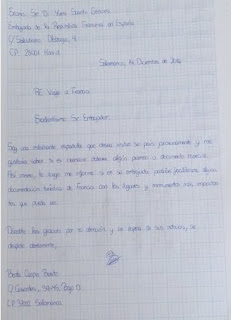 Excmo. Sr. D. Yves Saint-Geours
Embajada de la República Francesa en España
C/ Salustiano Olózaga, 9
C.P. 28001 Madrid
Salamanca, 14 Diciembre de 2016
RE: Viaje a Francia
Excelentísimo Sr. Embajador:
Soy una estudiante española que desea visitar su país próximamente y me
gustaría saber si es necesario obtener algún permiso o documento especial.
Así mismo, le ruego me informe si en su embajada podrían facilitarme alguna
documentación turística de Francia con los lugares y monumentos más importantes
que pueda ver.
Dándole las gracias por su atención y en espera de sus noticias, se
despide atentamente,
C.P. Salamanca